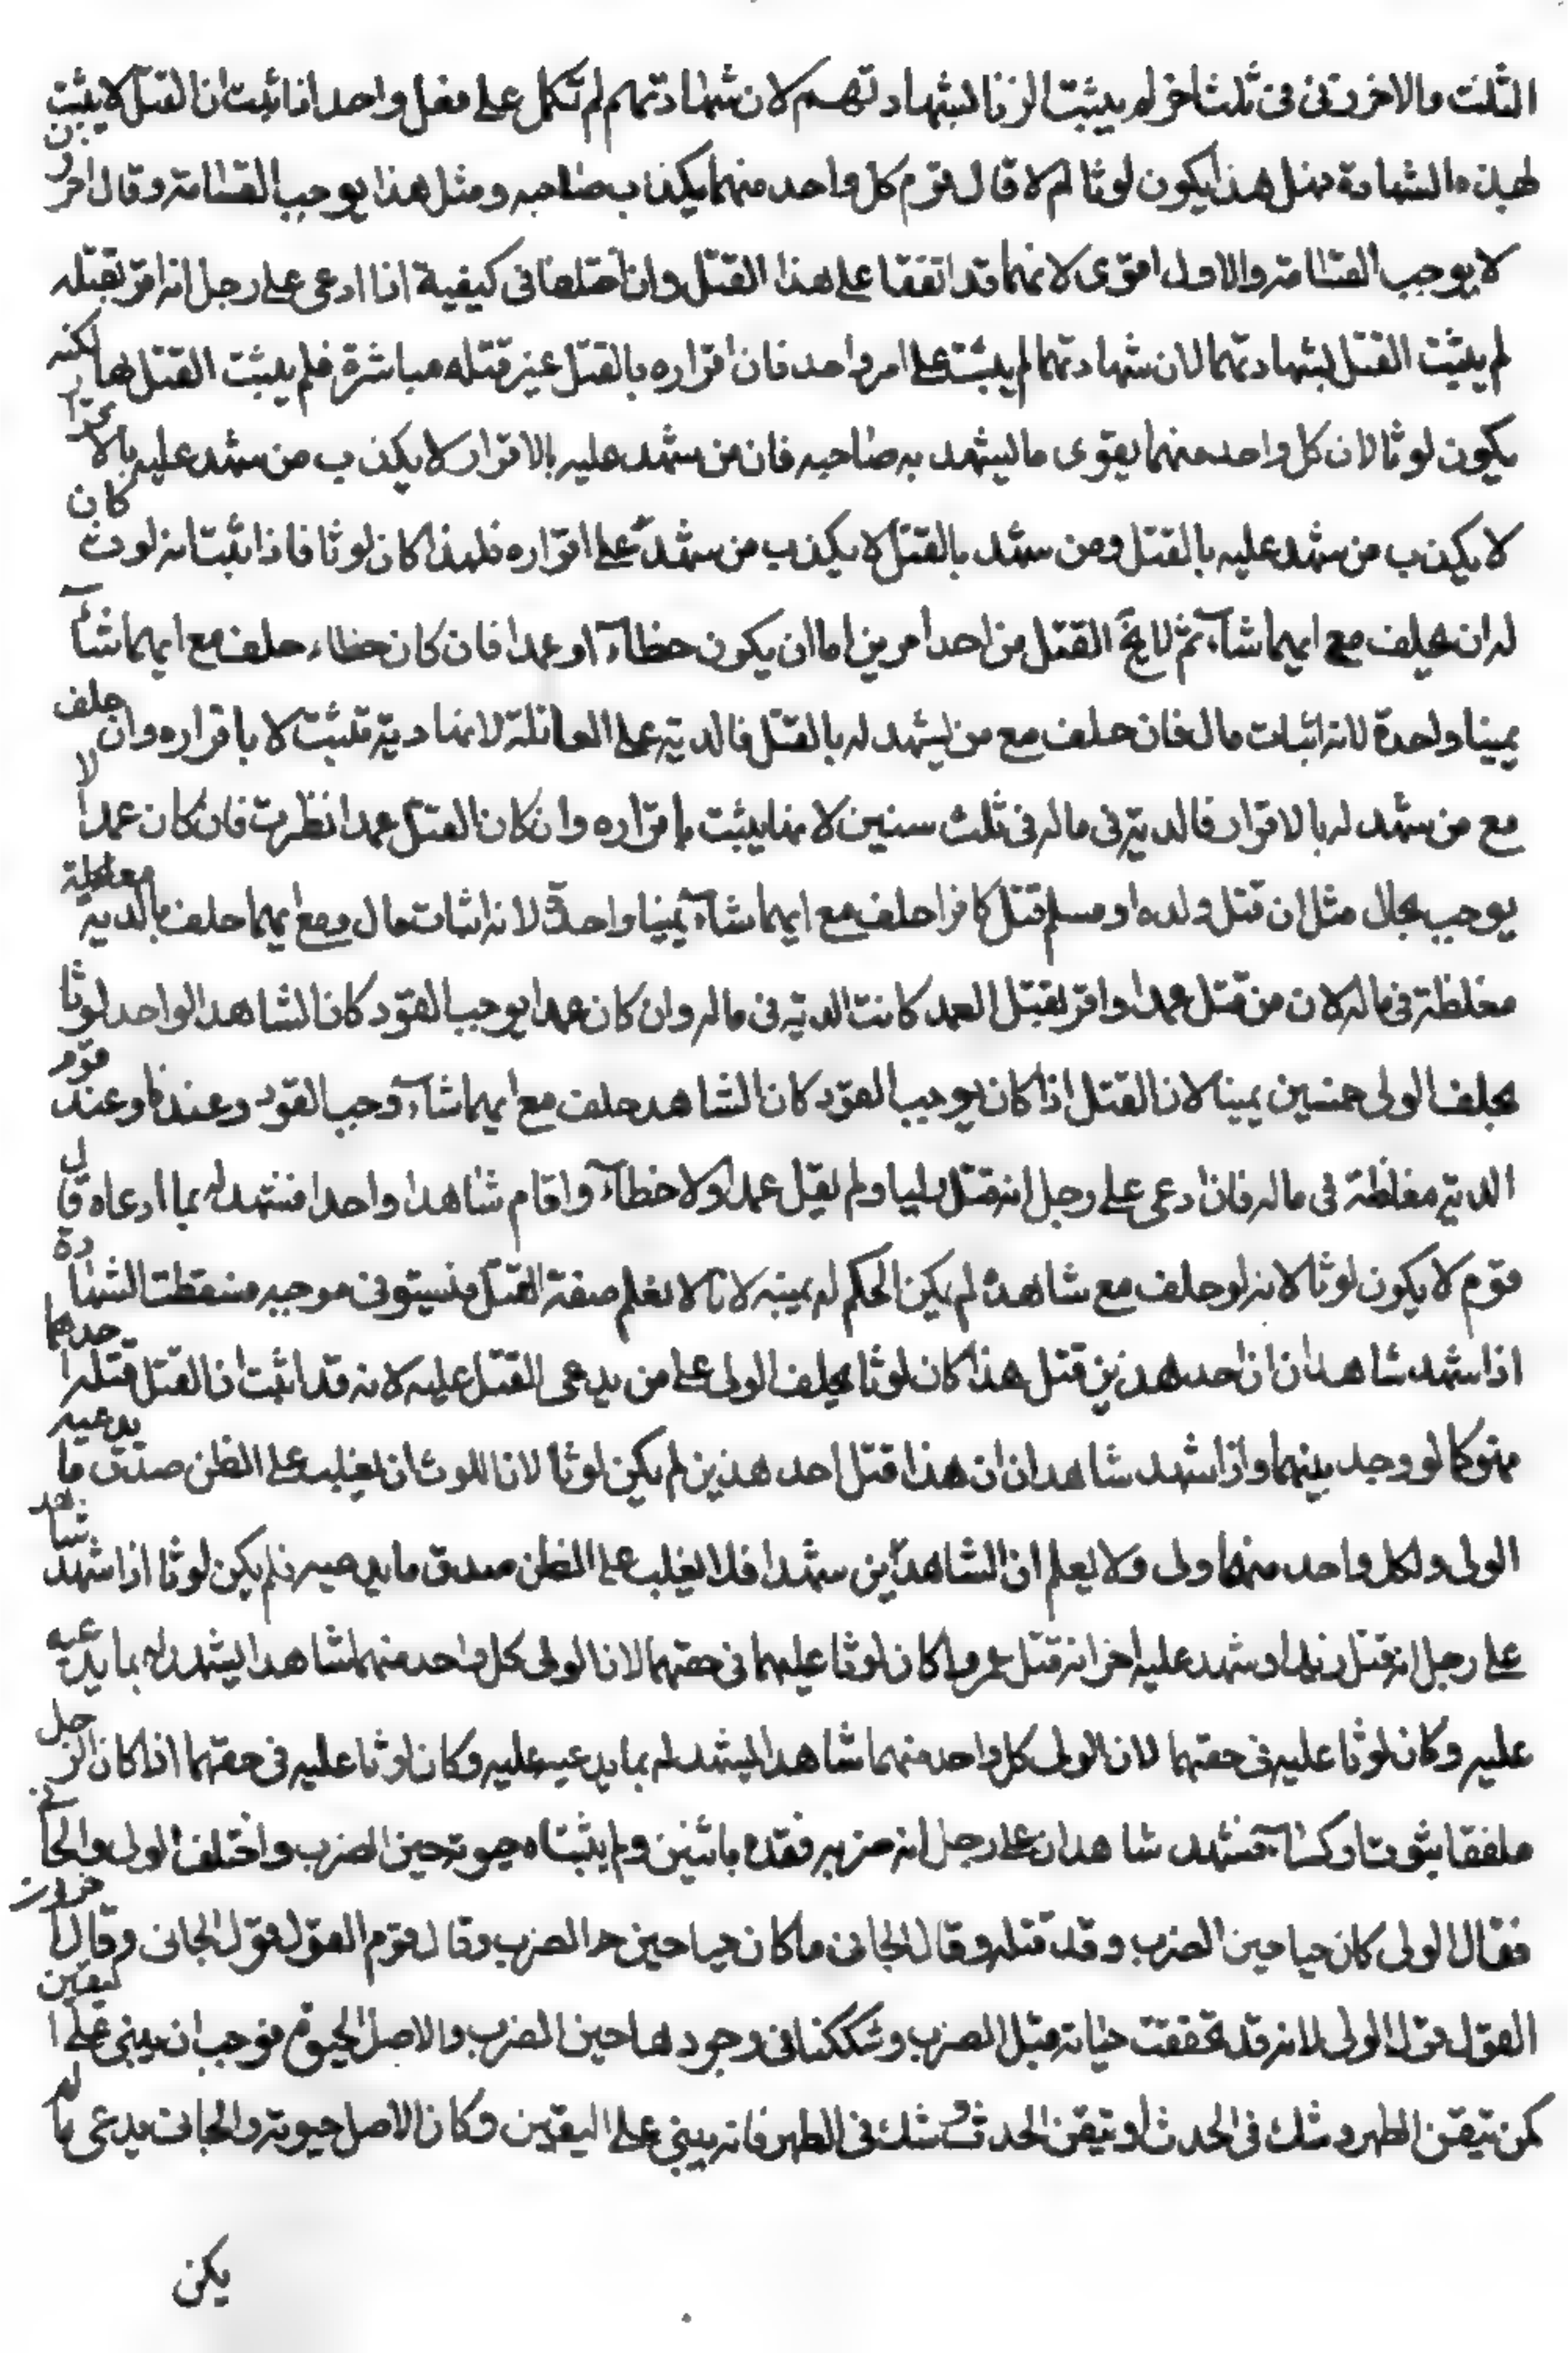 الثلث والاخرتن فى ثلث اخر لم يثبت الزنا لبشهادتهم لان شهادتهم لم تكمل على فعل واحد اذا ثبت ان القتل لا يثبت
بهذه الشهادة فهل هذا يكون لوثا ام لا قال قوم كل واحد منهما يكذب صاحبه ومثل هذا يوجب القسامة وقال اخرون
لا يوجب القسامة والاول اقوى لانهما قد اتفقا على هذا القتل وان اختلفا فى كيفية اذا ادعى على رجل انه اقر بقتله
لم يثبت القتل بشهادتهما لان شهادتهما لم يثبت على امر واحد فان اقراره بالقتل غير قتله مباشرة فلم يثبت القتل بها لكنه
يكون لوثا لان كل واحد منهما يقوى ما يشهد به صاحبه فان من شهد عليه بالاقرار لا يكذب من شهد عليه بالاقرار
لا يكذب من شهد عليه بالقتل ومن شهد بالقتل لا يكذب من شهد على اقراره فلهذا كان لوثا فاذا ثبت انه لوث كان
له ان يحلف مع ايهما شاء ثم لا يخ القتل من احد امرين اما ان يكون خطاء او عمدا فان كان خطاء حلف مع ايهما شاء
يمينا واحدة لانه اثبات مال فان حلف مع من يشهد له بالقتل فالدية على العاقلة لانها دية تثبت لا باقراره وان حلف
مع من شهد له بالاقرار فالدية فى ماله فى ثلث سنين لانها يثبت باقراره وان كان القتل عمدا نظرت فان كان عمدا لا
يوجب بحال مثل ان قتل ولده او مسلم قتل كافرا حلف مع ايهما شاء يمينا واحدة لانه اثبات مال ومع ايهما حلف بالدية
مغلظة فى ماله لان من قتل عمدا واقر بقتل العمد كانت الدية فى ماله وان كان عمدا يوجب القود كان الشاهد الواحد لوثا
يحلف الولى خمسين يمينا لان القتل اذا كان يوجب القود كان الشاهد حلف مع ايهما شاء وجب القود وعندنا وعند قوم
الدية مغلظة فى ماله فان ادعى على رجل انه قتل وليا ولم يقل عمدا ولا خطاء واقام شاهدا واحدا فشهد له بما ادعاه قال
قوم لا يكون لوثا لانه لو حلف مع شاهده لم يكن الحكم له بيمينه لانا لا نعلم صفة القتل فنستوفى موجبه فسقطت الشهادة
اذا شهد شاهدان ان احد هذين قتل هذا كان لوثا يحلف الولى على من يدعى القتل عليه لانه قد اثبت ان القتل قتله احدهما
فهو كما لو وجد بينهما واذا شهد شاهدان ان هذا قتل احد هذين لم يكن لوثا لان اللوث ان يغلب على الظن صدق ما يدعيه
الولى ولكل واحد منهما ولى ولا يعلم ان الشاهدين شهدا فلا يغلب على الظن صدق ما يدعيه فلم يكن لوثا اذا شهد شاهد
على رجل انه قتل زيدا وشهد عليه اخر انه قتل عمروا كان لوثا عليهما فى حقهما لان الولى كل واحد منهما شاهدا يشهد له بما يدعيه
عليه وكان لوثا عليه فى حقهما لان الولى كل واحد منهما شاهدا يشهد له بما يدعيه عليه وكان لوثا عليه فى حقهما اذا كان الرجل
ملففا بثوب او كساء فشهد شاهدان على رجل انه ضربه فقده باثنين ولم يثبتاه حيوته حين الضرب واختلف الولى والجانى
فقال الولى كان حيا حين الضرب وقد قتله وقال الجانى ما كان حيا حين الضرب وقال قوم القول قول الجانى وقال اخرون
القول قول الولى لانه قد تحققت حياته قبل الضرب وشككنا فى وجودها حين الضرب والاصل الحيوة فوجب ان يبنى على اليقين
كمن تيقن الطهر وشك فى الحدث او تيقن الحدث وشك فى الطهر فانه يبنى على اليقين وكان الاصل حيوته والجانى يدعى ما لم
يكن